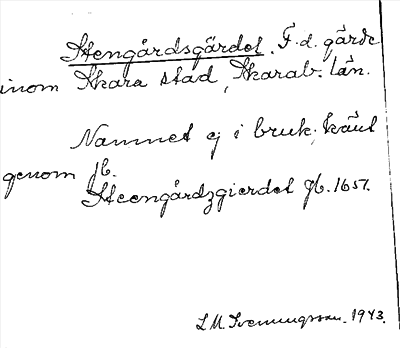 Stengårdsgärdet. F.d. gärde
inom Skara stad, Skarab. län.
Namnet ej i bruk; känt
genom jb.
Steengårdzgierdet Jb. 1657.
L M Svenungsson. 1943.